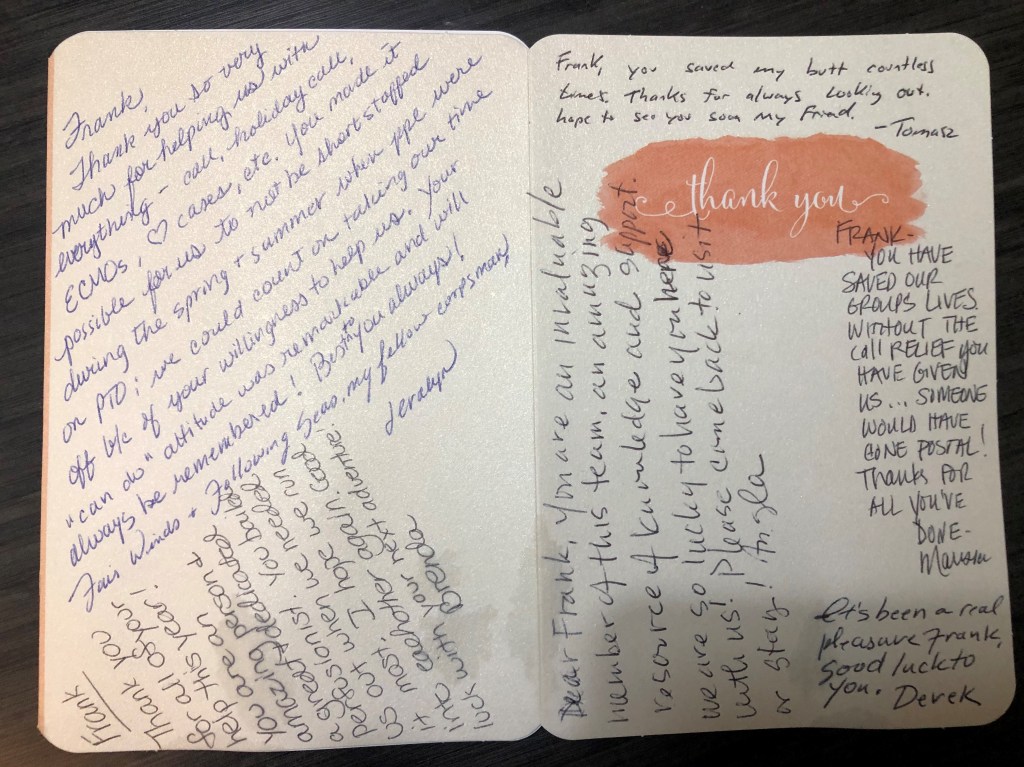 Frank,
Thank you so very
much for helping us with
everything - call, holiday call,
ECMOs, ♡ cases, etc. You made it
possible for us to not be short staffed
during the spring + summer when ppl were
on PTO; we could count on taking our time
off b/c of your willingness to help us. Your
"can do" attitude was remarkable and will
always be remembered! Best to you always!
Fair Winds + Following Seas, my fellow corpsman,
Jeralyn
Frank
Thank you
for all of your
help this year!
You are an
amazing person &
a great + dedicated
perfusionist. You bailed
us out when we needed
it most. I hope we run
into eachother again. Good
luck with your next adventure.
Brenda
Frank, you saved my butt countless
times. Thanks for always looking out.
hope to see you soon my friend.
-Tomasz
thank you
Dear Frank, You are an invaluable
member of this team, an amazing
resource of knowledge and support.
we are so lucky to have you here
with us! Please come back to visit
or stay!
FRANK-
YOU HAVE
SAVED OUR
GROUPS LIVES.
WITHOUT THE
CALL RELIEF YOU
HAVE GIVEN
US... SOMEONE
WOULD HAVE
GONE POSTAL!
THANKS FOR
ALL YOU'VE
DONE-
It's been a real
pleasure Frank,
Good luck to
you. Derek